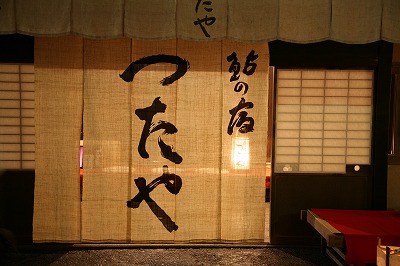 たや
鮎の宿
つたや